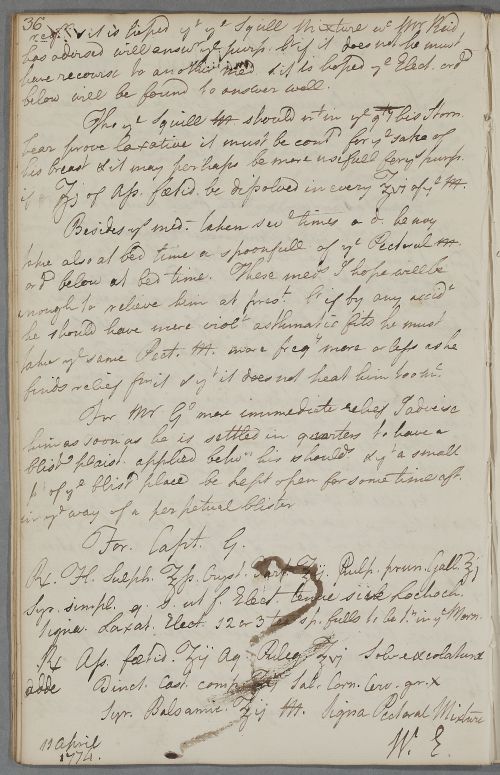 36
necessy. & it is hoped yt ye Squill Mixture wc Mr Reid
has advised will answr ye purp. bt if it does not he must
have recourse to another med & it is hoped ye Elect. ord
below will be found to answer well.
Tho ye Squill M. should in ye qty his Stom.
bear prove laxative it must be contd for ye sake of
his breast & it may perhaps be more usefull for ys purp.
if ʒj of Ass. fœtid. be dissolved in every ʒvj of ye M.
Besides ys med. taken sevl times a d. he may
take also at bed time a spoonfull of ye Pectoral M.
ord below at bed time. These meds I hope will be
enough to relieve him at prest. bt if by any accidt
he should have more violt asthmatic fits he must
take ye same Pect. M. more freqy more or less as he
finds relief for it & yt it does not heat him too mc.
For Mr Gs more immediate relief I advise
him as soon as he is settled in quarters to have a
blistr plaistr applied betwn his shouldrs & yt a small
pt of ye blistd place be kept open for some time aft.
in ye way of a perpetual blister
For Capt. G.
℞ Fl. Sulph. ʒss Cryst. Tart. ʒij Pulp. prun. Gall. ʒj
Syr. simpl. q. s. ut f. Elect. tenue sive Lochoch.
Signa. Laxat. Elect. 1 2 or 3 tea sp. fulls to be tn in ye Morn.
℞ Ass. fœtid. ʒij Aq Puleg. ʒvj Solv. et colatura
adde Tinct. Cast. comp. Sal. Corn. Cerv. gr. x
Syr. Balsamic. ʒij M. Signa Pectoral Mixture
11 April
1774.
W. E.